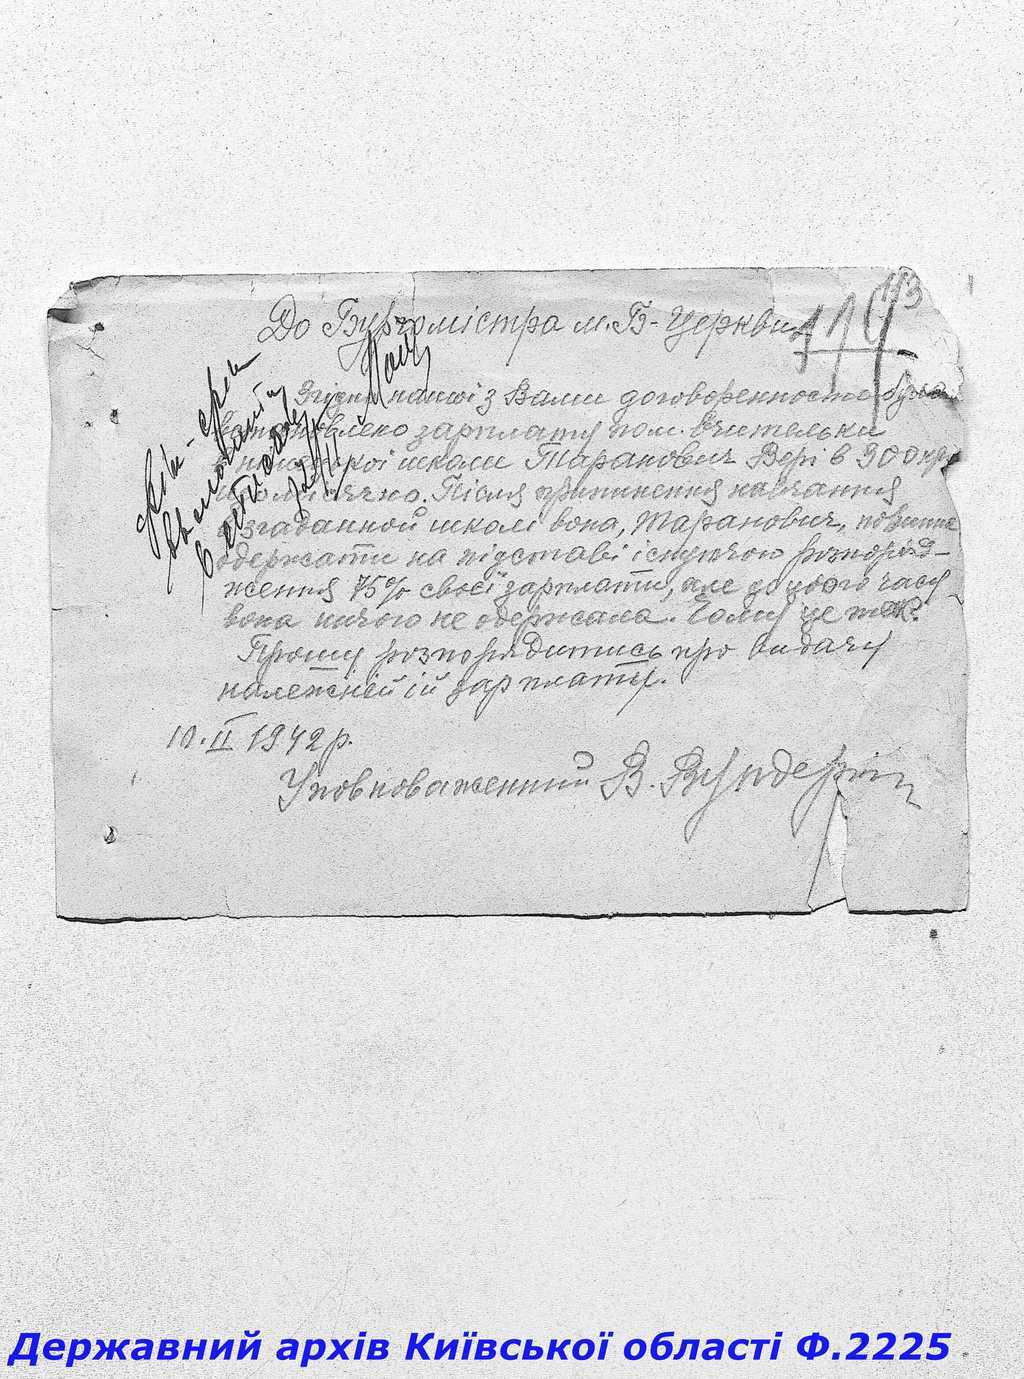 До Бургомістра м. Б-Церкви
119
113
Згідно нашої з Вами договоренности була
встановлено зарплату пом. вчительки
німецької школи Таранович Вері в 900 крб
щомісячно. Після припинення навчання
в згаданной школі вона, Таранович, повинна
одержати на підставі існуючого розпоряд-
ження 75% своєї зарплати, але до цього часу
вона нічого не одержала. Чому це так?
Прошу розпорядитись про видачу
належній ій зарплати.
10.II 1942 р.
Уповноваженний В. Вундер